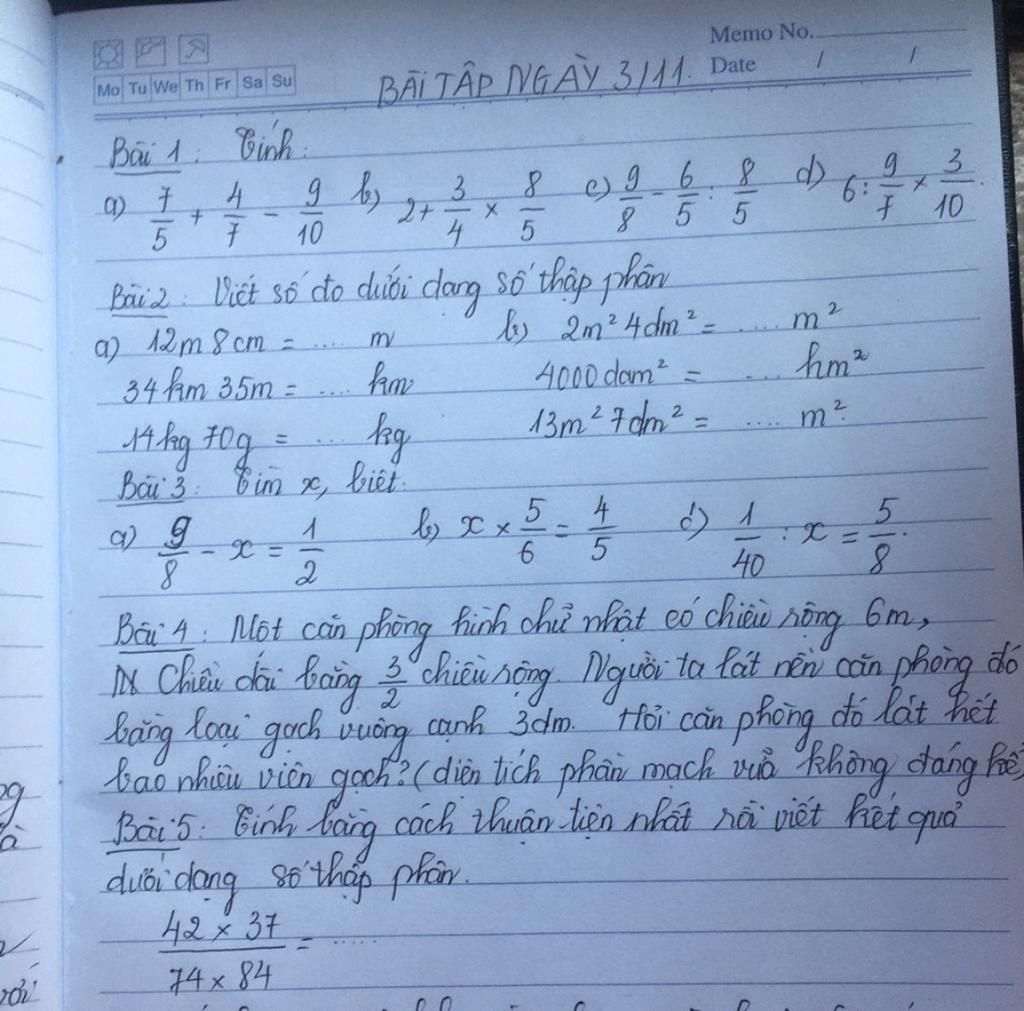 Memo No.
Mo Tu We Th Fr Sa Su
BÀI TẬP NGÀY 3/11.
Date / /
Bài 1: Tính:
a) 7/5 + 4/7 - 9/10 b) 2 + 3/4 × 8/5 c) 9/8 - 6/5 : 8/5 d) 6 : 9/7 × 3/10.
Bài 2: Viết số đo dưới dạng số thập phân
a) 12m 8cm = .... m b) 2m² 4dm² = .... m²
34km 35m = .... km 4000dam² = .... hm²
14kg 70g = .... kg 13m² 7dm² = .... m²
Bài 3: Tìm x, biết:
a) 9/8 - x = 1/2 b) x × 5/6 = 4/5 c) 1/40 : x = 5/8.
Bài 4: Một căn phòng hình chữ nhật có chiều rộng 6m,
Chiều dài bằng 3/2 chiều rộng. Người ta lát nền căn phòng đó
bằng loại gạch vuông cạnh 3dm. Hỏi căn phòng đó lát hết
bao nhiêu viên gạch? (diện tích phần mạch vữa không đáng kể)
Bài 5: Tính bằng cách thuận tiện nhất rồi viết kết quả
dưới dạng số thập phân.
42 × 37 / 74 × 84 = .....